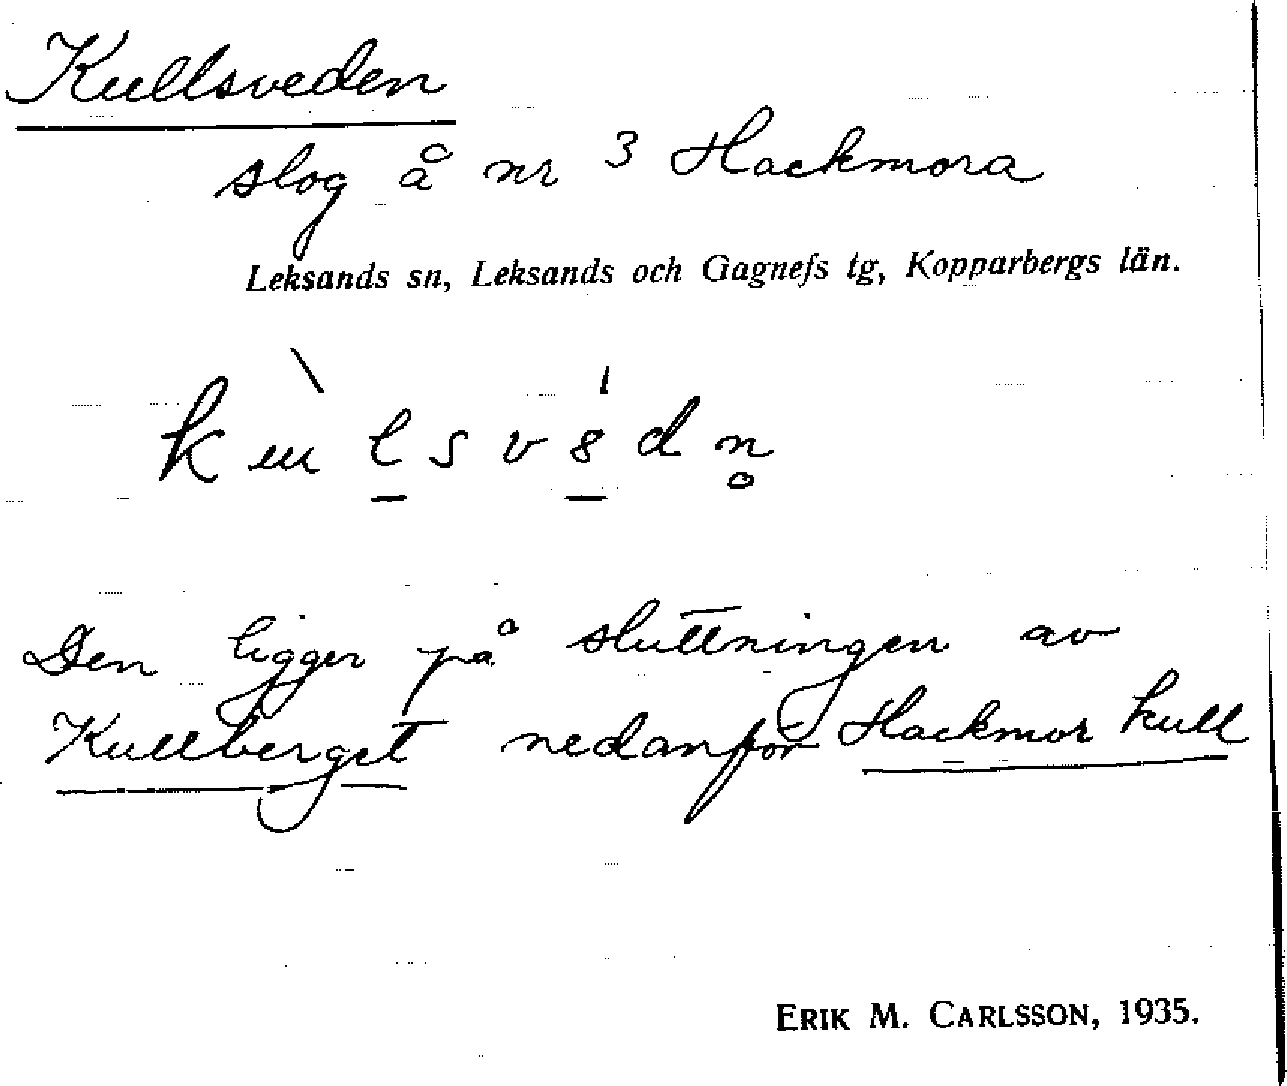 Kullsveden
slog å nr 3 Hackmora
Leksands sn, Leksands och Gagnefs tg, Kopparbergs län.
Den ligger på sluttningen av
Kullberget nedanför Hackmor kull
ERIK M. CARLSSON, 1935.